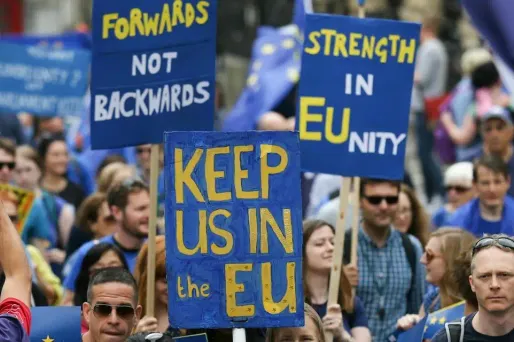 FORWARDS
NOT
BACKWARDS
STRENGTH
IN
EUNITY
KEEP
US IN
the EU